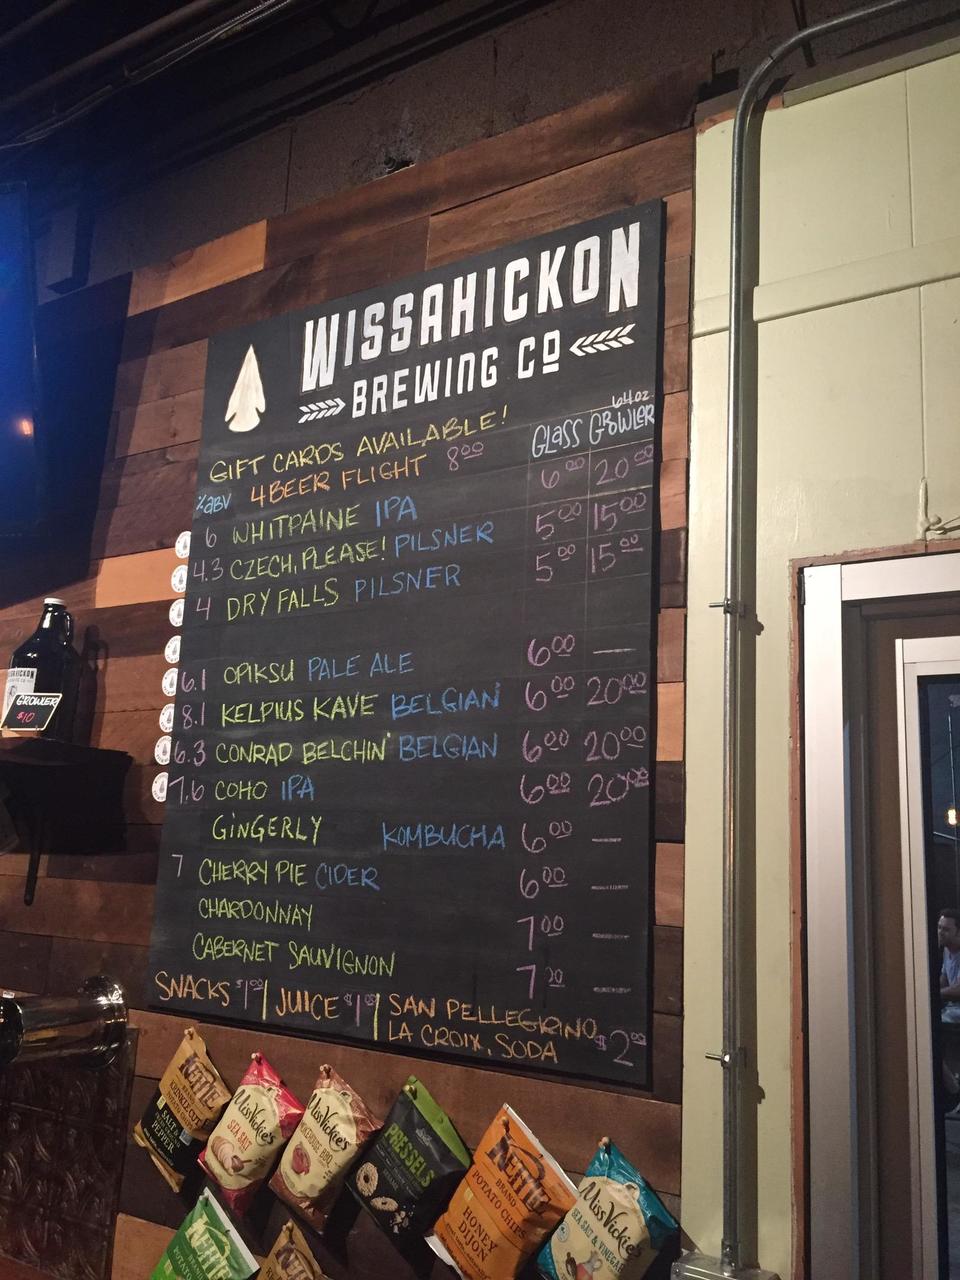 WISSAHICKON
BREWING CO
GIFT CARDS AVAILABLE!
64oz
GLASS GROWLER
%ABV 4 BEER FLIGHT 8.00
6 WHITPAINE IPA 6.00 20.00
4.3 CZECH, PLEASE! PILSNER 5.00 15.00
4 DRY FALLS PILSNER 5.00 15.00
6.1 OPIKSU PALE ALE 6.00 —
8.1 KELPIUS KAVE BELGIAN 6.00 20.00
6.3 CONRAD BELCHIN' BELGIAN 6.00 20.00
7.6 COHO IPA 6.00 20.00
GINGERLY KOMBUCHA 6.00 —
7 CHERRY PIE CIDER 6.00 —
CHARDONNAY 7.00 —
CABERNET SAUVIGNON 7.00 —
SNACKS $1.00 | JUICE $1.00 | SAN PELLEGRINO
LA CROIX, SODA $2.00
GROWLER
$10
KETTLE
BRAND
KRINKLE CUT
POTATO CHIPS
SALT &
PEPPER
Miss Vickie's
SEA SALT
Miss Vickie's
SMOKEHOUSE BBQ
PRESSELS
KETTLE
BRAND
POTATO CHIPS
HONEY
DIJON
Miss Vickie's
SEA SALT & VINEGAR
KETTLE